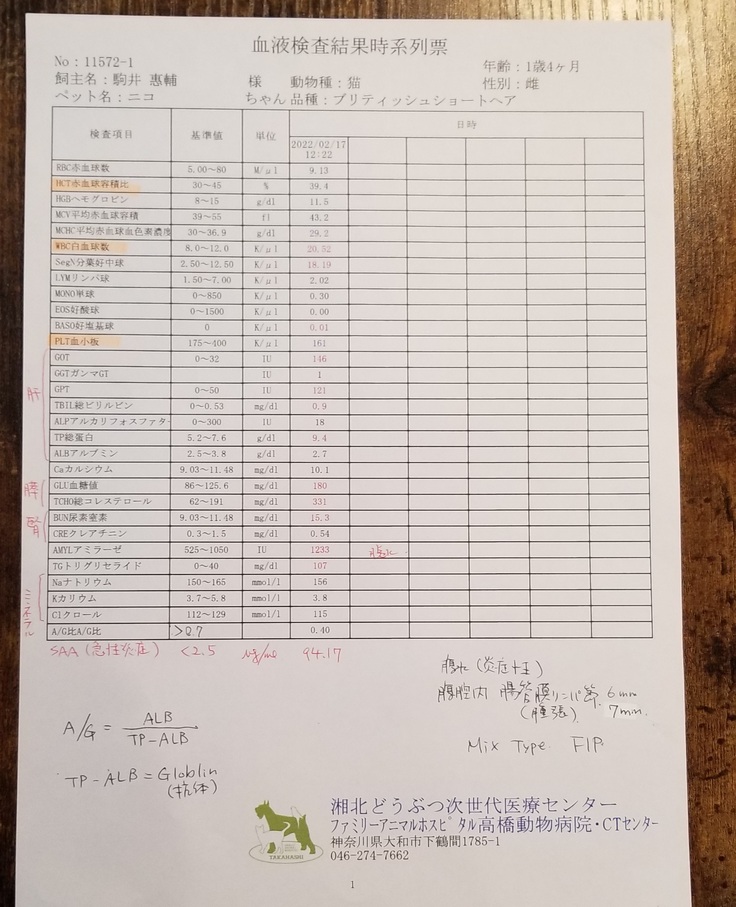 血液検査結果時系列票
No：11572-1
年齢：1歳4ヶ月
飼主名：駒井 惠輔 様 動物種：猫 性別：雌
ペット名：ニコ ちゃん 品種：ブリティッシュショートヘア
検査項目 基準値 単位 日時
2022/02/17
12:22
RBC赤血球数 5.00～80 M/μl 9.13
HCT赤血球容積比 30～45 % 39.4
HGBヘモグロビン 8～15 g/dl 11.5
MCV平均赤血球容積 39～55 fl 43.2
MCHC平均赤血球血色素濃度 30～36.9 g/dl 29.2
WBC白血球数 8.0～12.0 K/μl 20.52
SegN分葉好中球 2.50～12.50 K/μl 18.19
LYMリンパ球 1.50～7.00 K/μl 2.02
MONO単球 0～850 K/μl 0.30
EOS好酸球 0～1500 K/μl 0.00
BASO好塩基球 0 K/μl 0.01
PLT血小板 175～400 K/μl 161
GOT 0～32 IU 146
GGTガンマGT IU 1
肝 GPT 0～50 IU 121
TBIL総ビリルビン 0～0.53 mg/dl 0.9
ALPアルカリフォスファタ- 0～300 IU 18
TP総蛋白 5.2～7.6 g/dl 9.4
ALBアルブミン 2.5～3.8 g/dl 2.7
Caカルシウム 9.03～11.48 mg/dl 10.1
膵 GLU血糖値 86～125.6 mg/dl 180
TCHO総コレステロール 62～191 mg/dl 331
腎 BUN尿素窒素 9.03～11.48 mg/dl 15.3
CREクレアチニン 0.3～1.5 mg/dl 0.54
AMYLアミラーゼ 525～1050 IU 1233 腹水
TGトリグリセライド 0～40 mg/dl 107
ミネラル Naナトリウム 150～165 mmol/l 156
Kカリウム 3.7～5.8 mmol/l 3.8
Clクロール 112～129 mmol/l 115
A/G比A/G比 >0.7 0.40
SAA (急性炎症) <2.5 μg/ml 94.17
腹水 (炎症+)
腹腔内 腸管膜リンパ節 6mm
(腫張) 7mm
A/G = ALB
TP-ALB
Mix Type FIP
TP-ALB = Globlin
(抗体)
TAKAHASHI
湘北どうぶつ次世代医療センター
ファミリーアニマルホスピタル高橋動物病院・CTセンター
神奈川県大和市下鶴間1785-1
046-274-7662
1